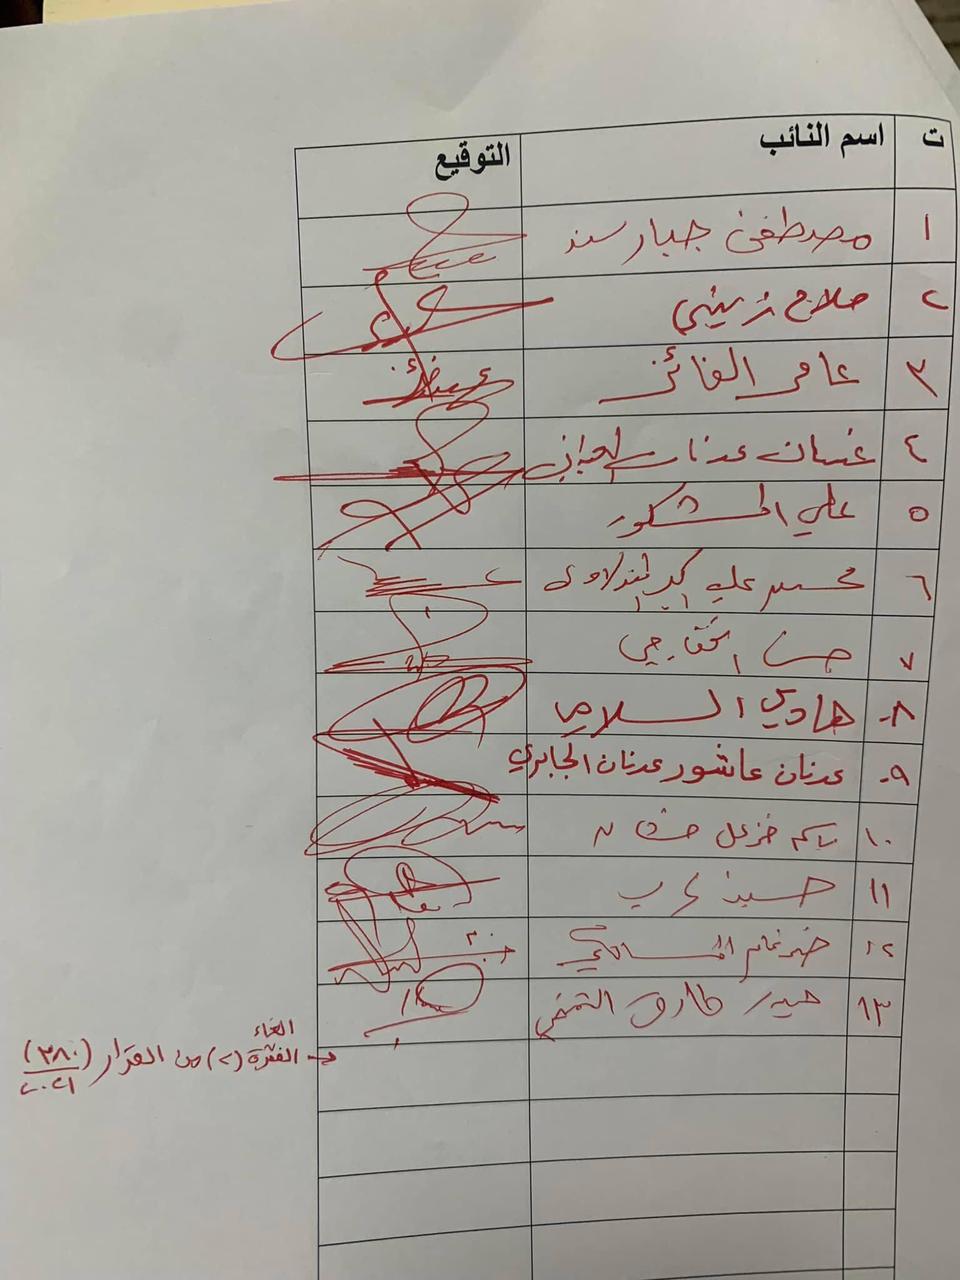 ت اسم النائب التوقيع
١ مصطفى جبار سند
٢ صلاح زيني
٣ عامر الفائز
٤ غسان عدنان
٥ علي المشكور
٦ محسن علي اكبر المندلاوي
٧ حسن الخفاجي
٨- هادي السلامي
٩- عدنان عاشور عدنان الجابري
١٠ باسم خزعل خشان
١١ حسين عرب
١٢ ضرغام المالكي
١٣ حيدر طارق التميمي
الغاء
الفقرة (٢) من القرار (٣٨٠)
٢٠٢١